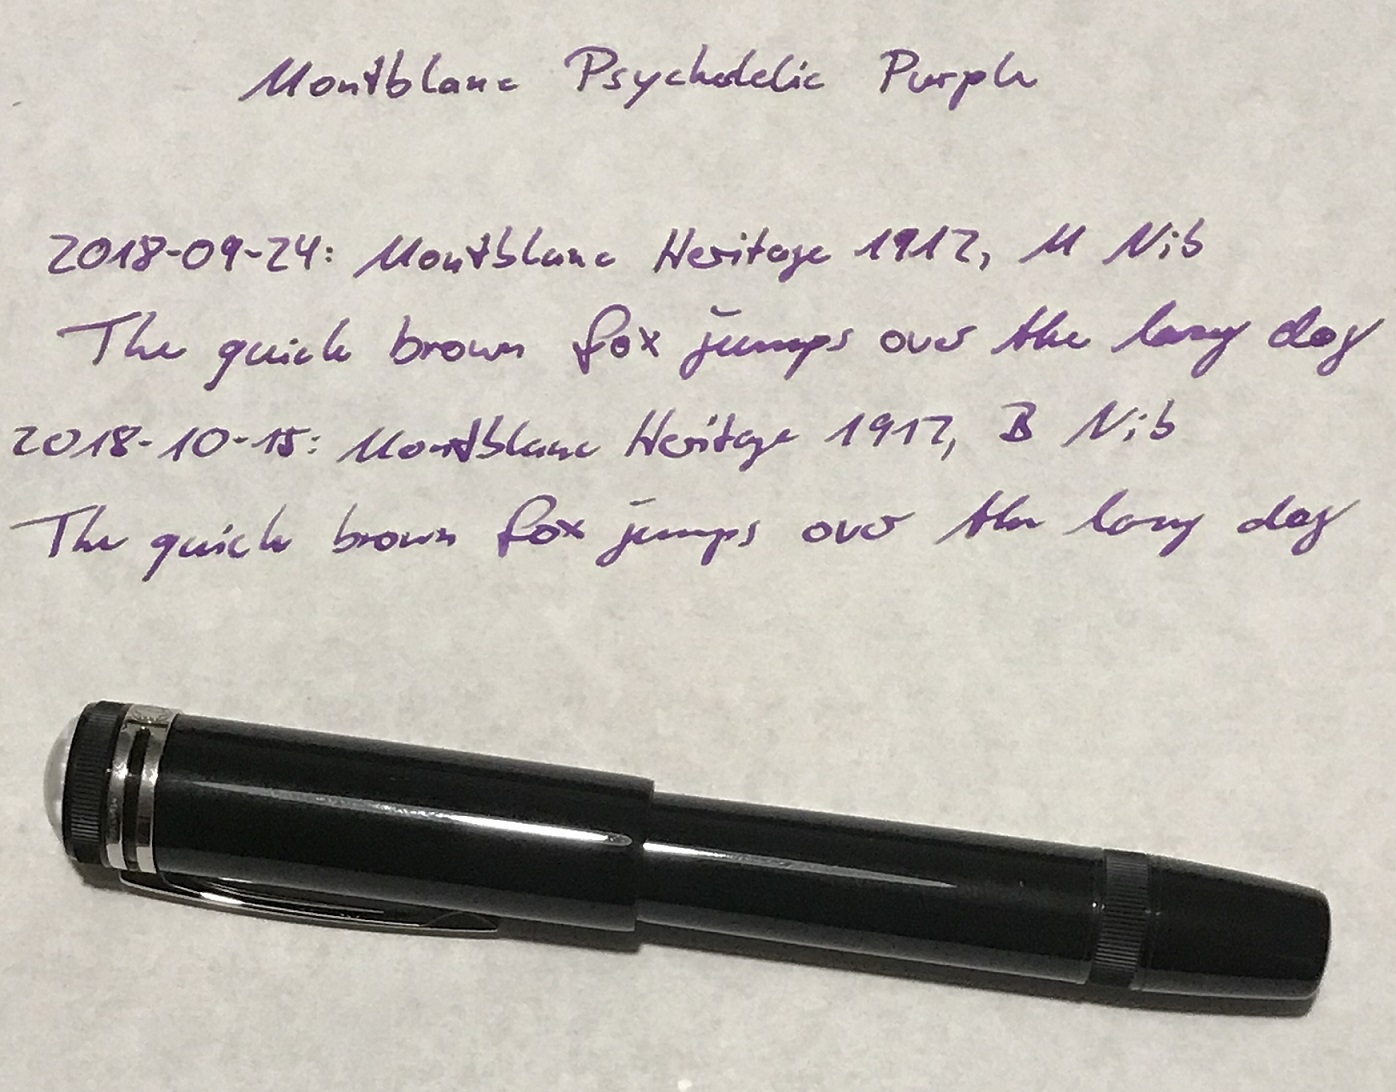 Montblanc Psychedelic Purple
2018-09-24: Montblanc Heritage 1912, M Nib
The quick brown fox jumps over the lazy dog
2018-10-15: Montblanc Heritage 1912, B Nib
The quick brown fox jumps over the lazy dog